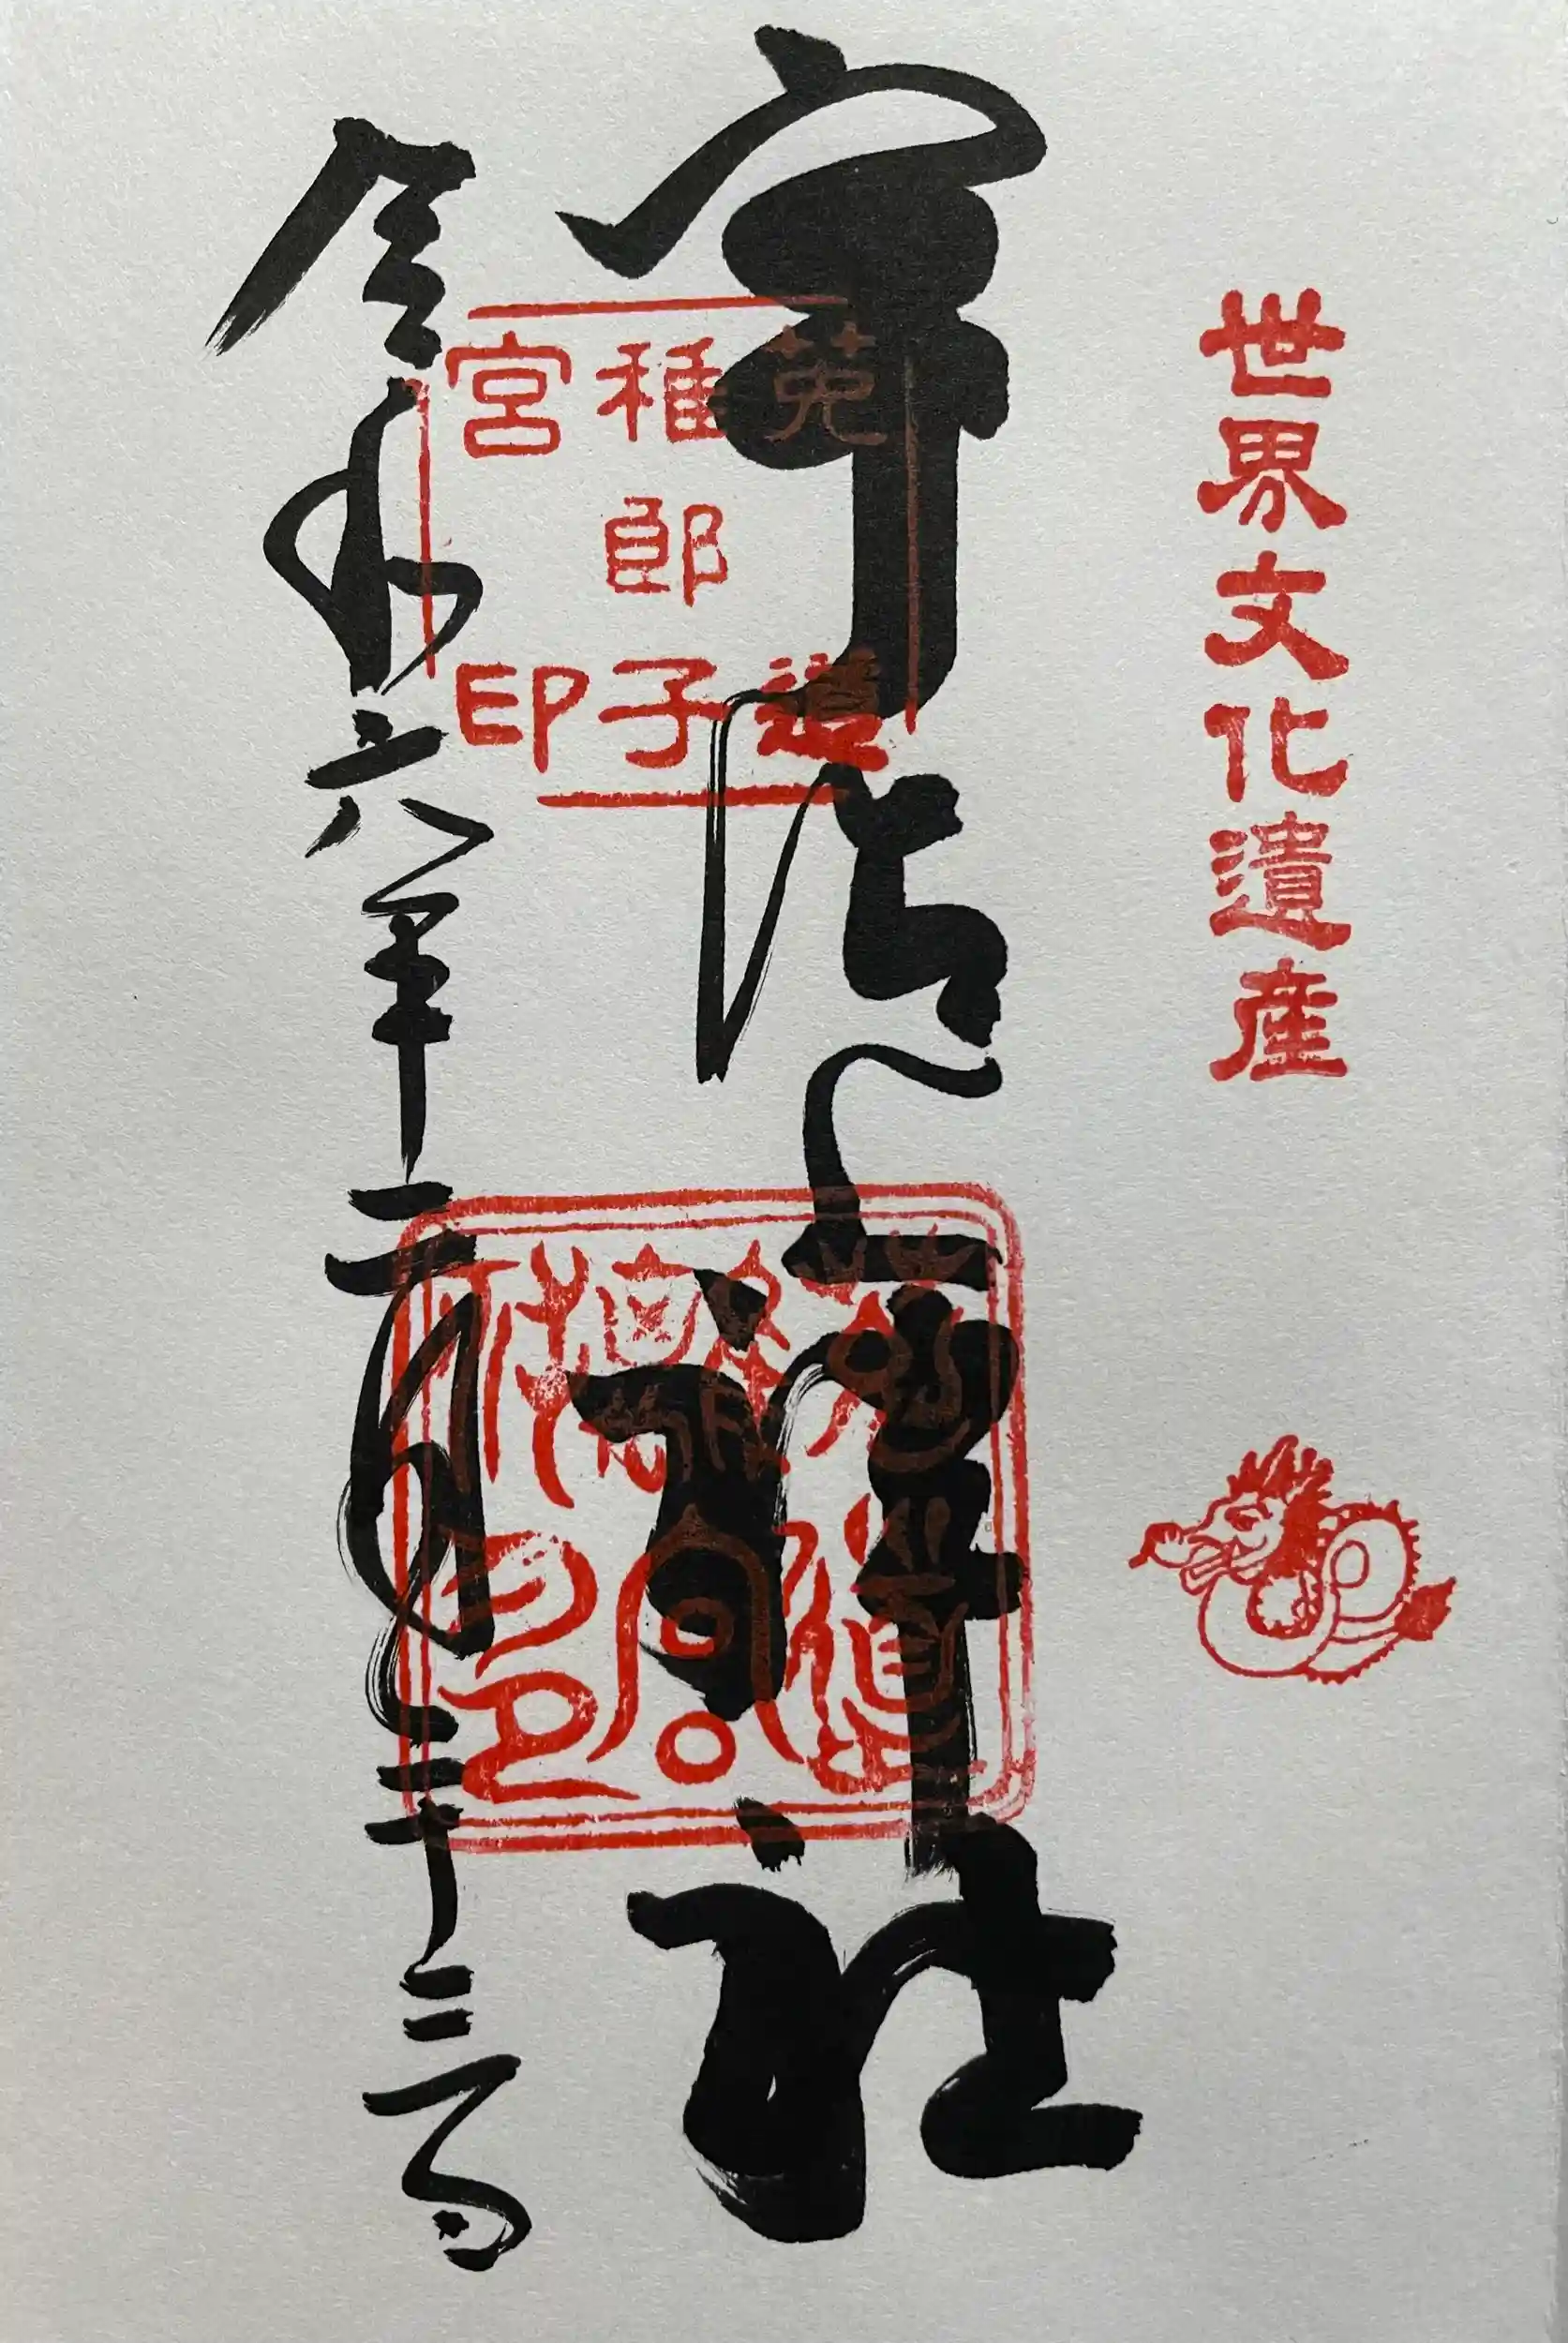 世界文化遺産
宇治上神社
莵道
稚郎子
宮印
令和六年二月二十三日